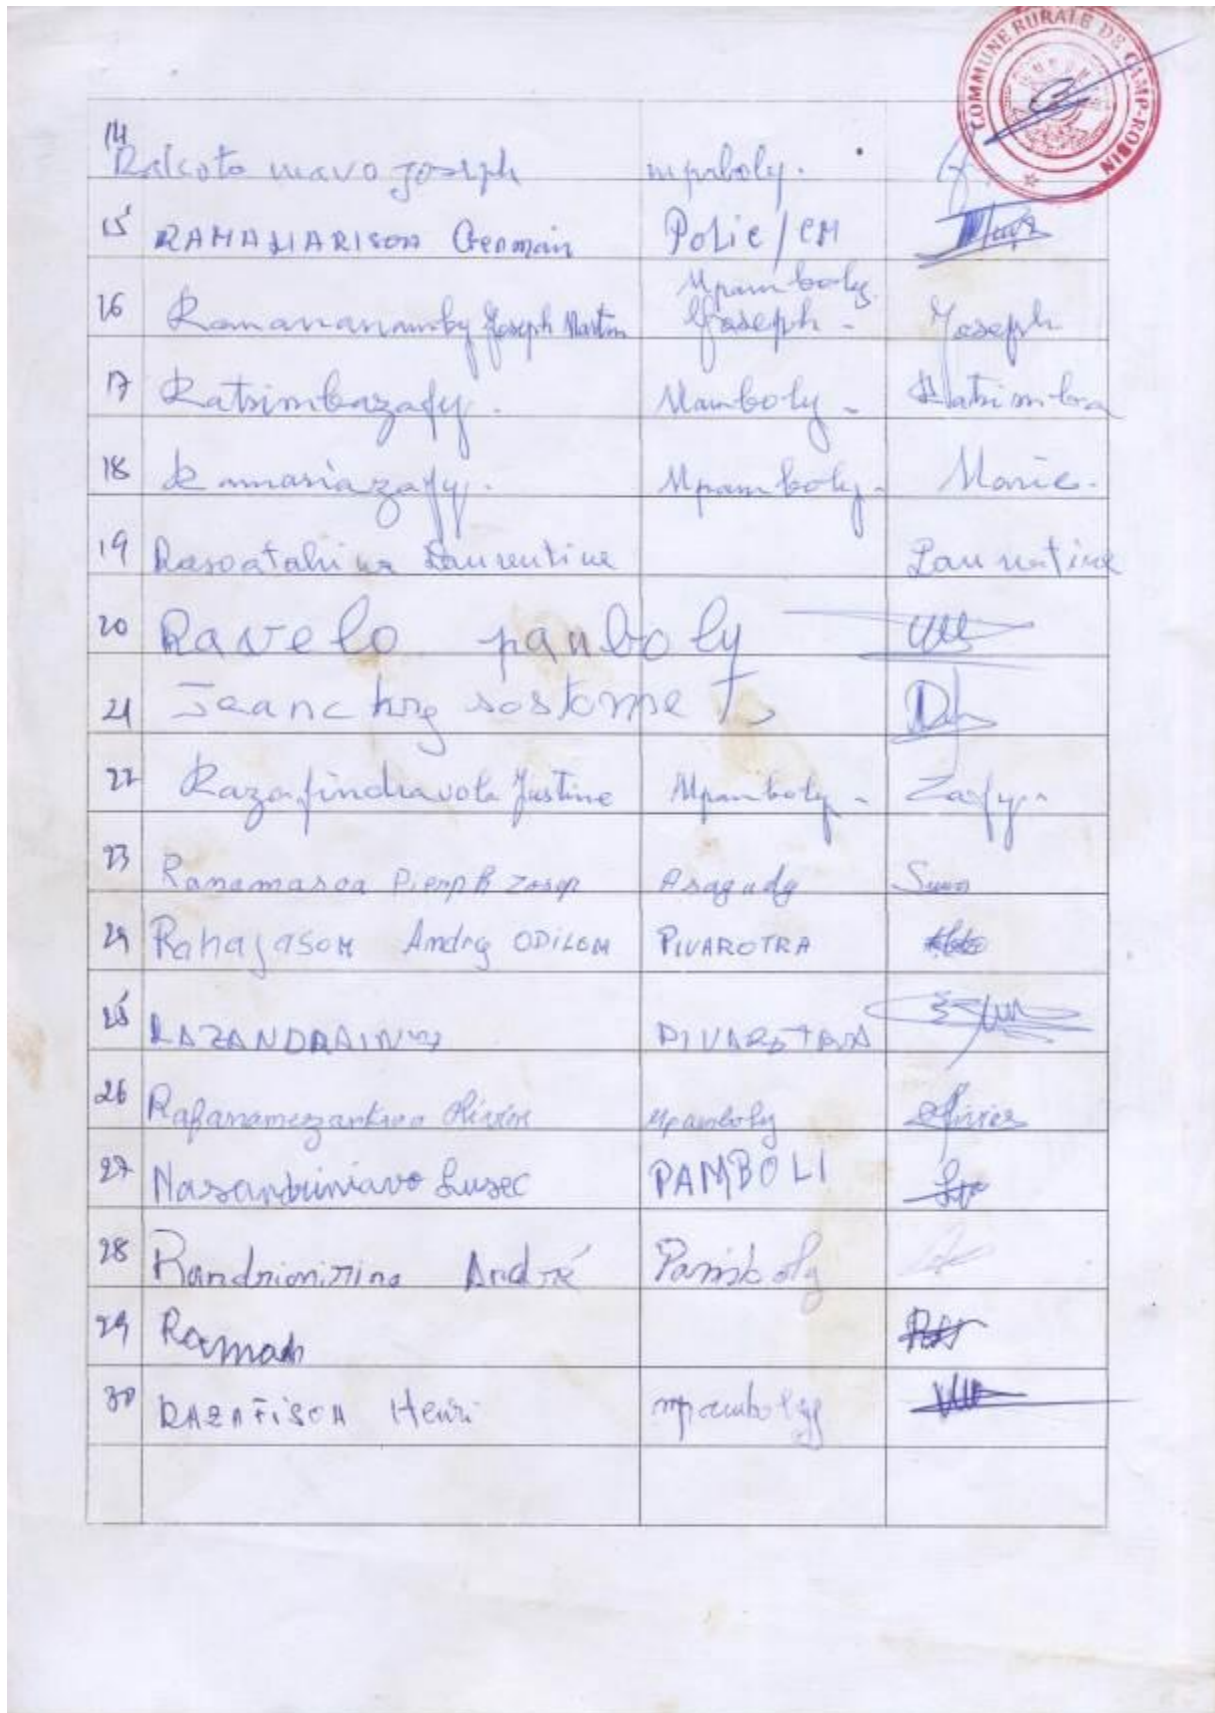 COMMUNE RURALE DE CAMP-ROBIN
14 Rakoto mavo Joseph mprboly.
15 RAMALIARISON Germain Polic/CM
16 Ramananamby Joseph Martin Mpamboly Joseph - Joseph
17 Ratsimbazafy. Mamboly - Ratsimba
18 Ramariazafy. Mpamboly - Marie.
19 Rasoatahina Laurentine Laurentine
20 Ravelo panboly
21 Jeanc hry sostome
22 Razafindravola Justine Mpamboly - Zafy
23 Ranamasoa Asagady
24 Rahajasom Andry ODILOM PIVAROTRA
25 RAZANDRAINY PIVAROTRA
26 Olivier Mpamboly Olivier
27 Lusec PAMBOLI
28 André Pamboly
29
30 RAZAFISON Henri mpamboly